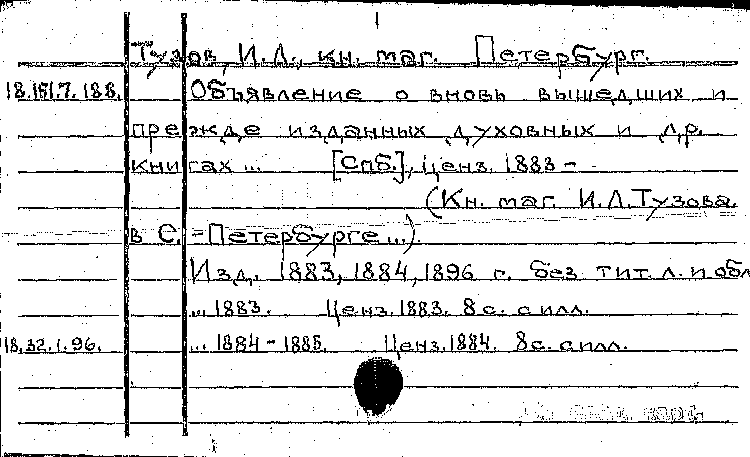 Тузов, И.Л., кн. маг. Петербург.
18.151.7.188. Объявление о вновь вышедших и
прежде изданных духовных и др.
книгах ... [Спб.], ценз. 1883 -
(Кн. маг. И.Л.Тузова.
в С.-Петербурге ...).
Изд. 1883, 1884, 1896 г. без тит. л. и обл
... 1883. Ценз. 1883. 8 с. с илл.
18.32.1.96. ... 1884-1885. Ценз. 1884. 8 с. с илл.